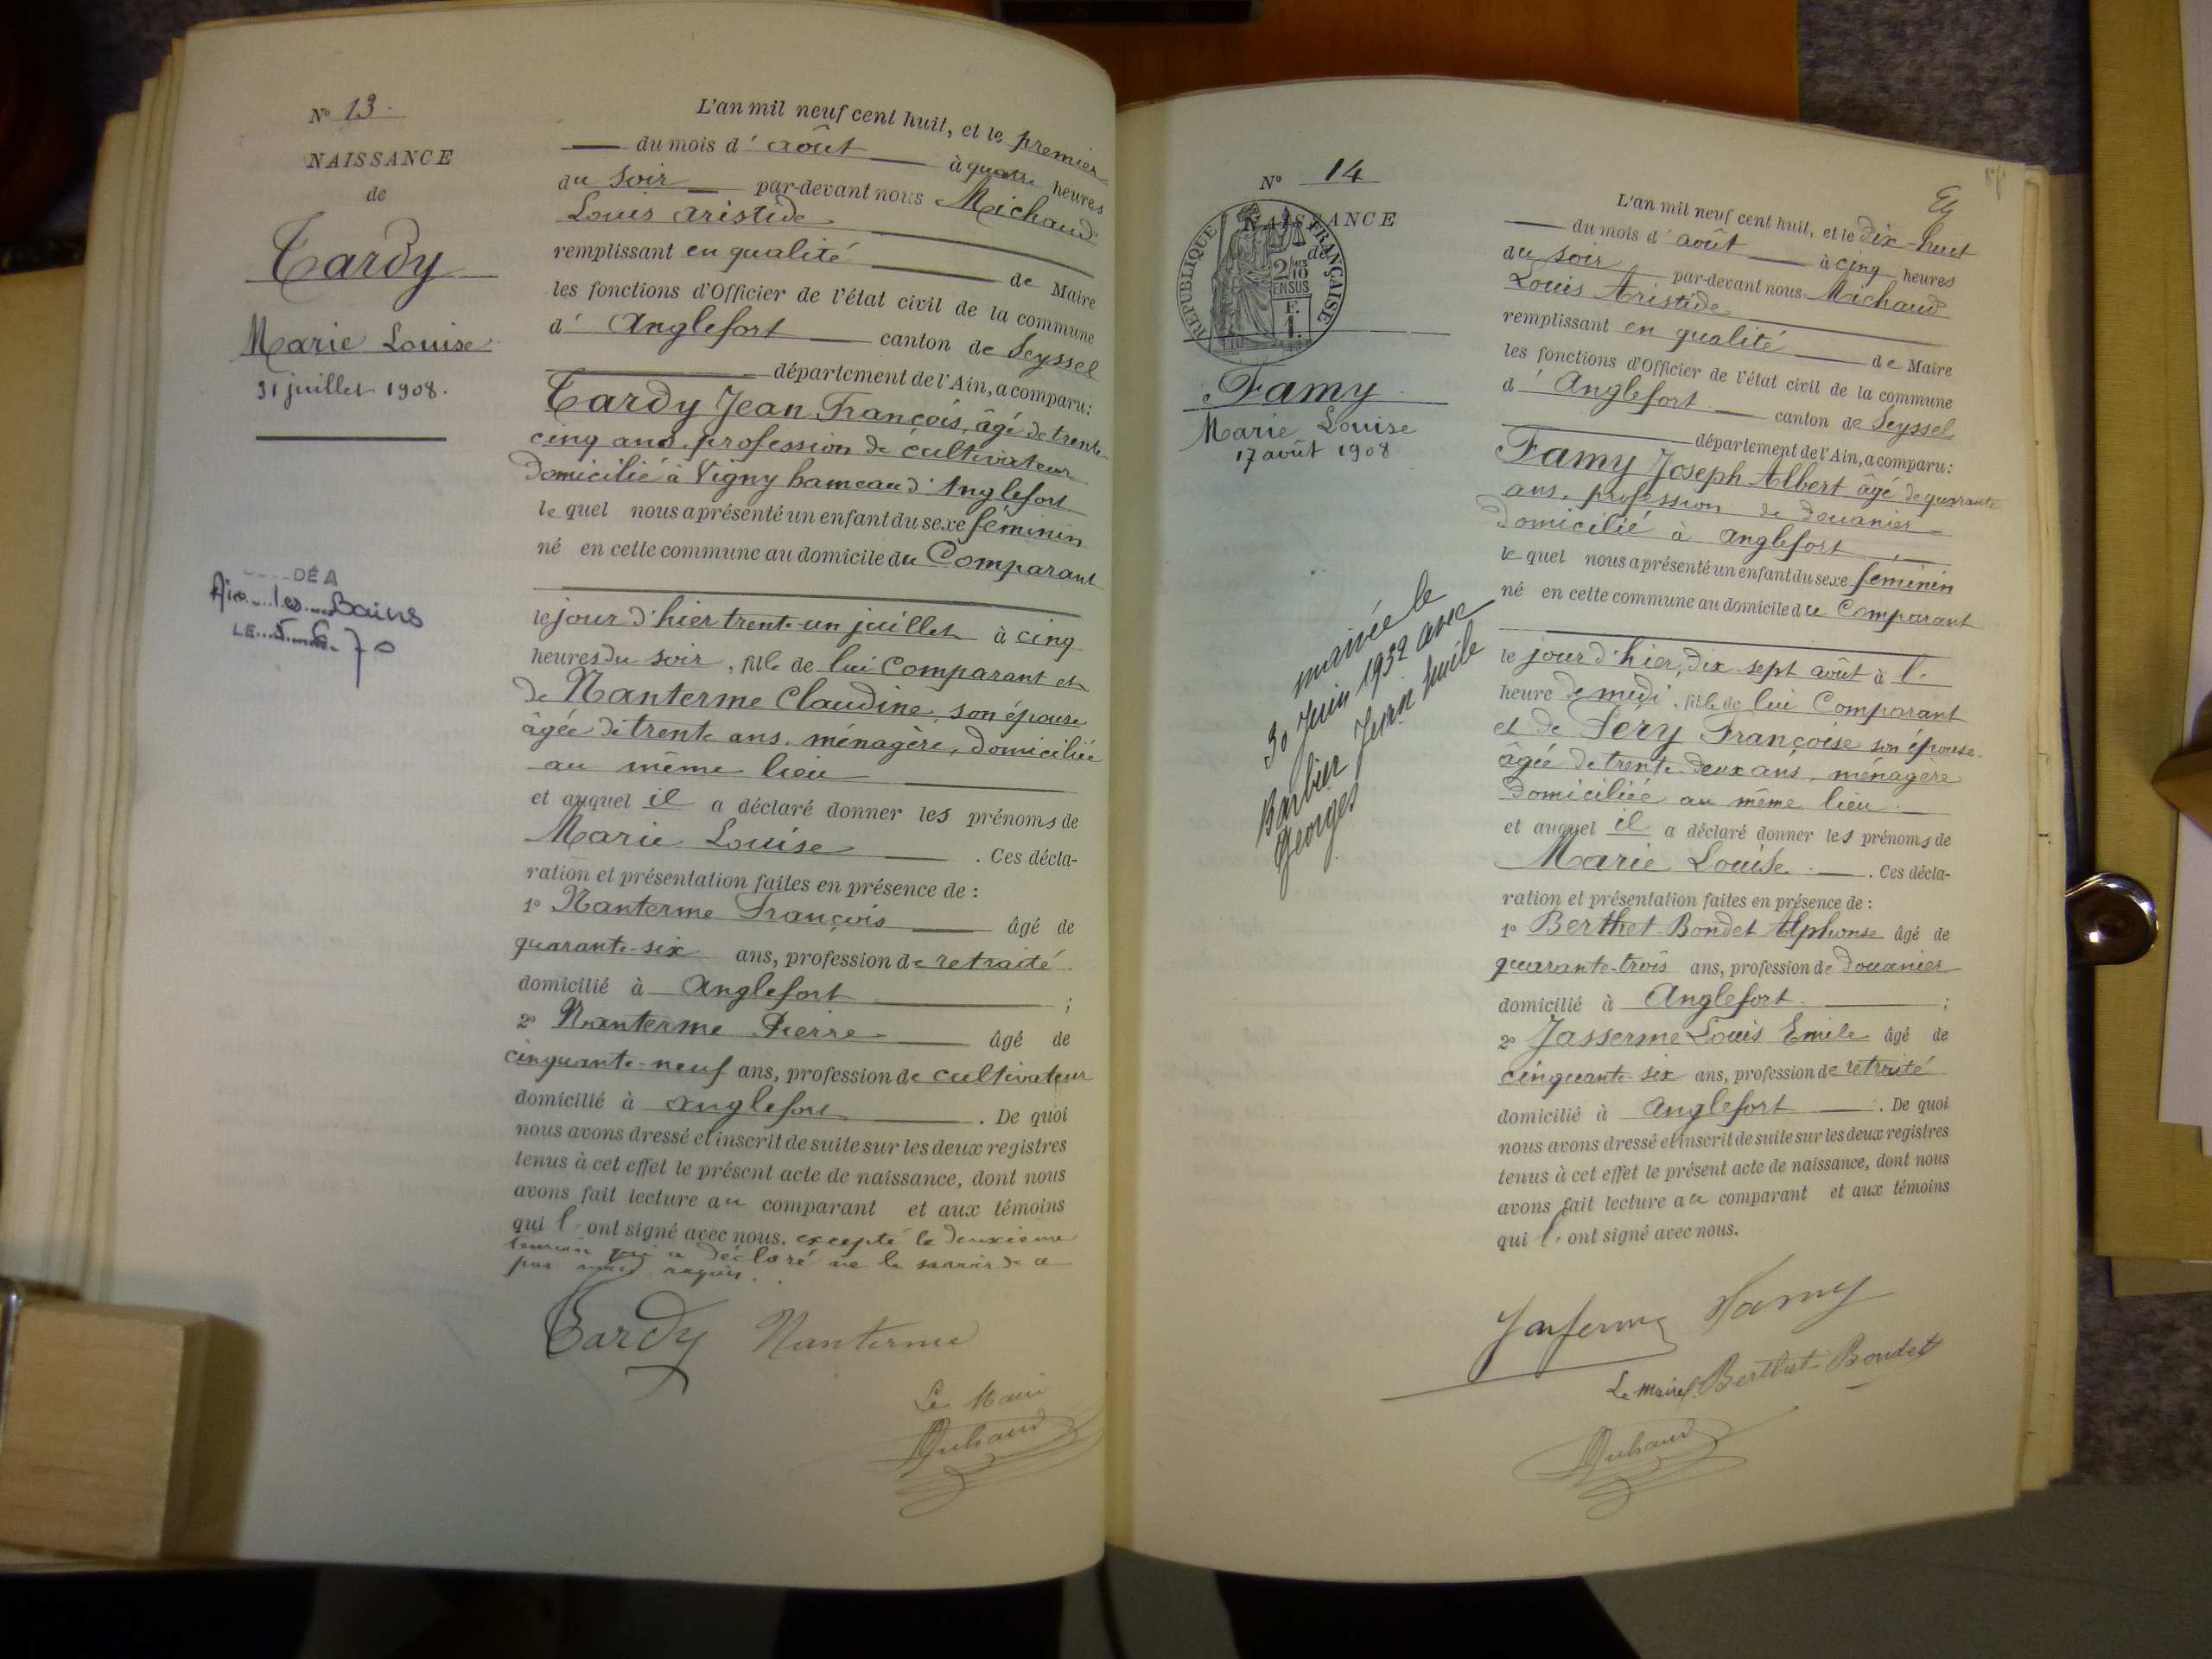 N° 13.
NAISSANCE
de
Tardy
Marie Louise
31 juillet 1908.
DÉ A
Aix les Bains
LE 5. 6. 70
L'an mil neuf cent huit, et le premier
du mois d' août à quatre heures
du soir par-devant nous Michaud
Louis Aristide
remplissant en qualité de Maire
les fonctions d'Officier de l'état civil de la commune
d' Anglefort canton de Seyssel
département de l'Ain, a comparu:
Tardy Jean François, âgé de trente-
cinq ans, profession de cultivateur
domicilié à Vigny hameau d'Anglefort
lequel nous a présenté un enfant du sexe féminin
né en cette commune au domicile du Comparant
le jour d'hier trente-un juillet à cinq
heures du soir, fille de lui Comparant et
de Nanterme Claudine, son épouse
âgée de trente ans, ménagère, domiciliée
au même lieu
et auquel il a déclaré donner les prénoms de
Marie Louise . Ces décla-
ration et présentation faites en présence de :
1° Nanterme François âgé de
quarante-six ans, profession de retraité
domicilié à Anglefort ;
2° Nanterme Pierre âgé de
cinquante-neuf ans, profession de cultivateur
domicilié à Anglefort . De quoi
nous avons dressé et inscrit de suite sur les deux registres
tenus à cet effet le présent acte de naissance, dont nous
avons fait lecture au comparant et aux témoins
qui l' ont signé avec nous. excepté le deuxième
témoin qui a déclaré ne le savoir de ce
par nous requis.
Tardy Nanterme
Le Maire
Michaud
N° 14
NAISSANCE
de
RÉPUBLIQUE FRANÇAISE
2/10 EN SUS
F.
1.
Famy
Marie Louise
17 août 1908
mariée le
30 Juin 1932 avec
Barbier Jean Emile
Georges
L'an mil neuf cent huit, et le dix-huit
du mois d' août à cinq heures
du soir par-devant nous Michaud
Louis Aristide
remplissant en qualité de Maire
les fonctions d'Officier de l'état civil de la commune
d' Anglefort canton de Seyssel
département de l'Ain, a comparu:
Famy Joseph Albert âgé de quarante
ans, profession de douanier
domicilié à Anglefort
lequel nous a présenté un enfant du sexe féminin
né en cette commune au domicile du Comparant
le jour d'hier, dix-sept août à l'
heure de midi, fille de lui Comparant
et de Sery Françoise son épouse
âgée de trente-deux ans, ménagère
domiciliée au même lieu.
et auquel il a déclaré donner les prénoms de
Marie Louise . Ces décla-
ration et présentation faites en présence de :
1° Berthet-Bondet Alphonse âgé de
quarante-trois ans, profession de douanier
domicilié à Anglefort ;
2° Jasserme Louis Emile âgé de
cinquante-six ans, profession de retraité
domicilié à Anglefort . De quoi
nous avons dressé et inscrit de suite sur les deux registres
tenus à cet effet le présent acte de naissance, dont nous
avons fait lecture au comparant et aux témoins
qui l' ont signé avec nous.
Jasserme Famy
Le maire Berthet-Bondet
Michaud